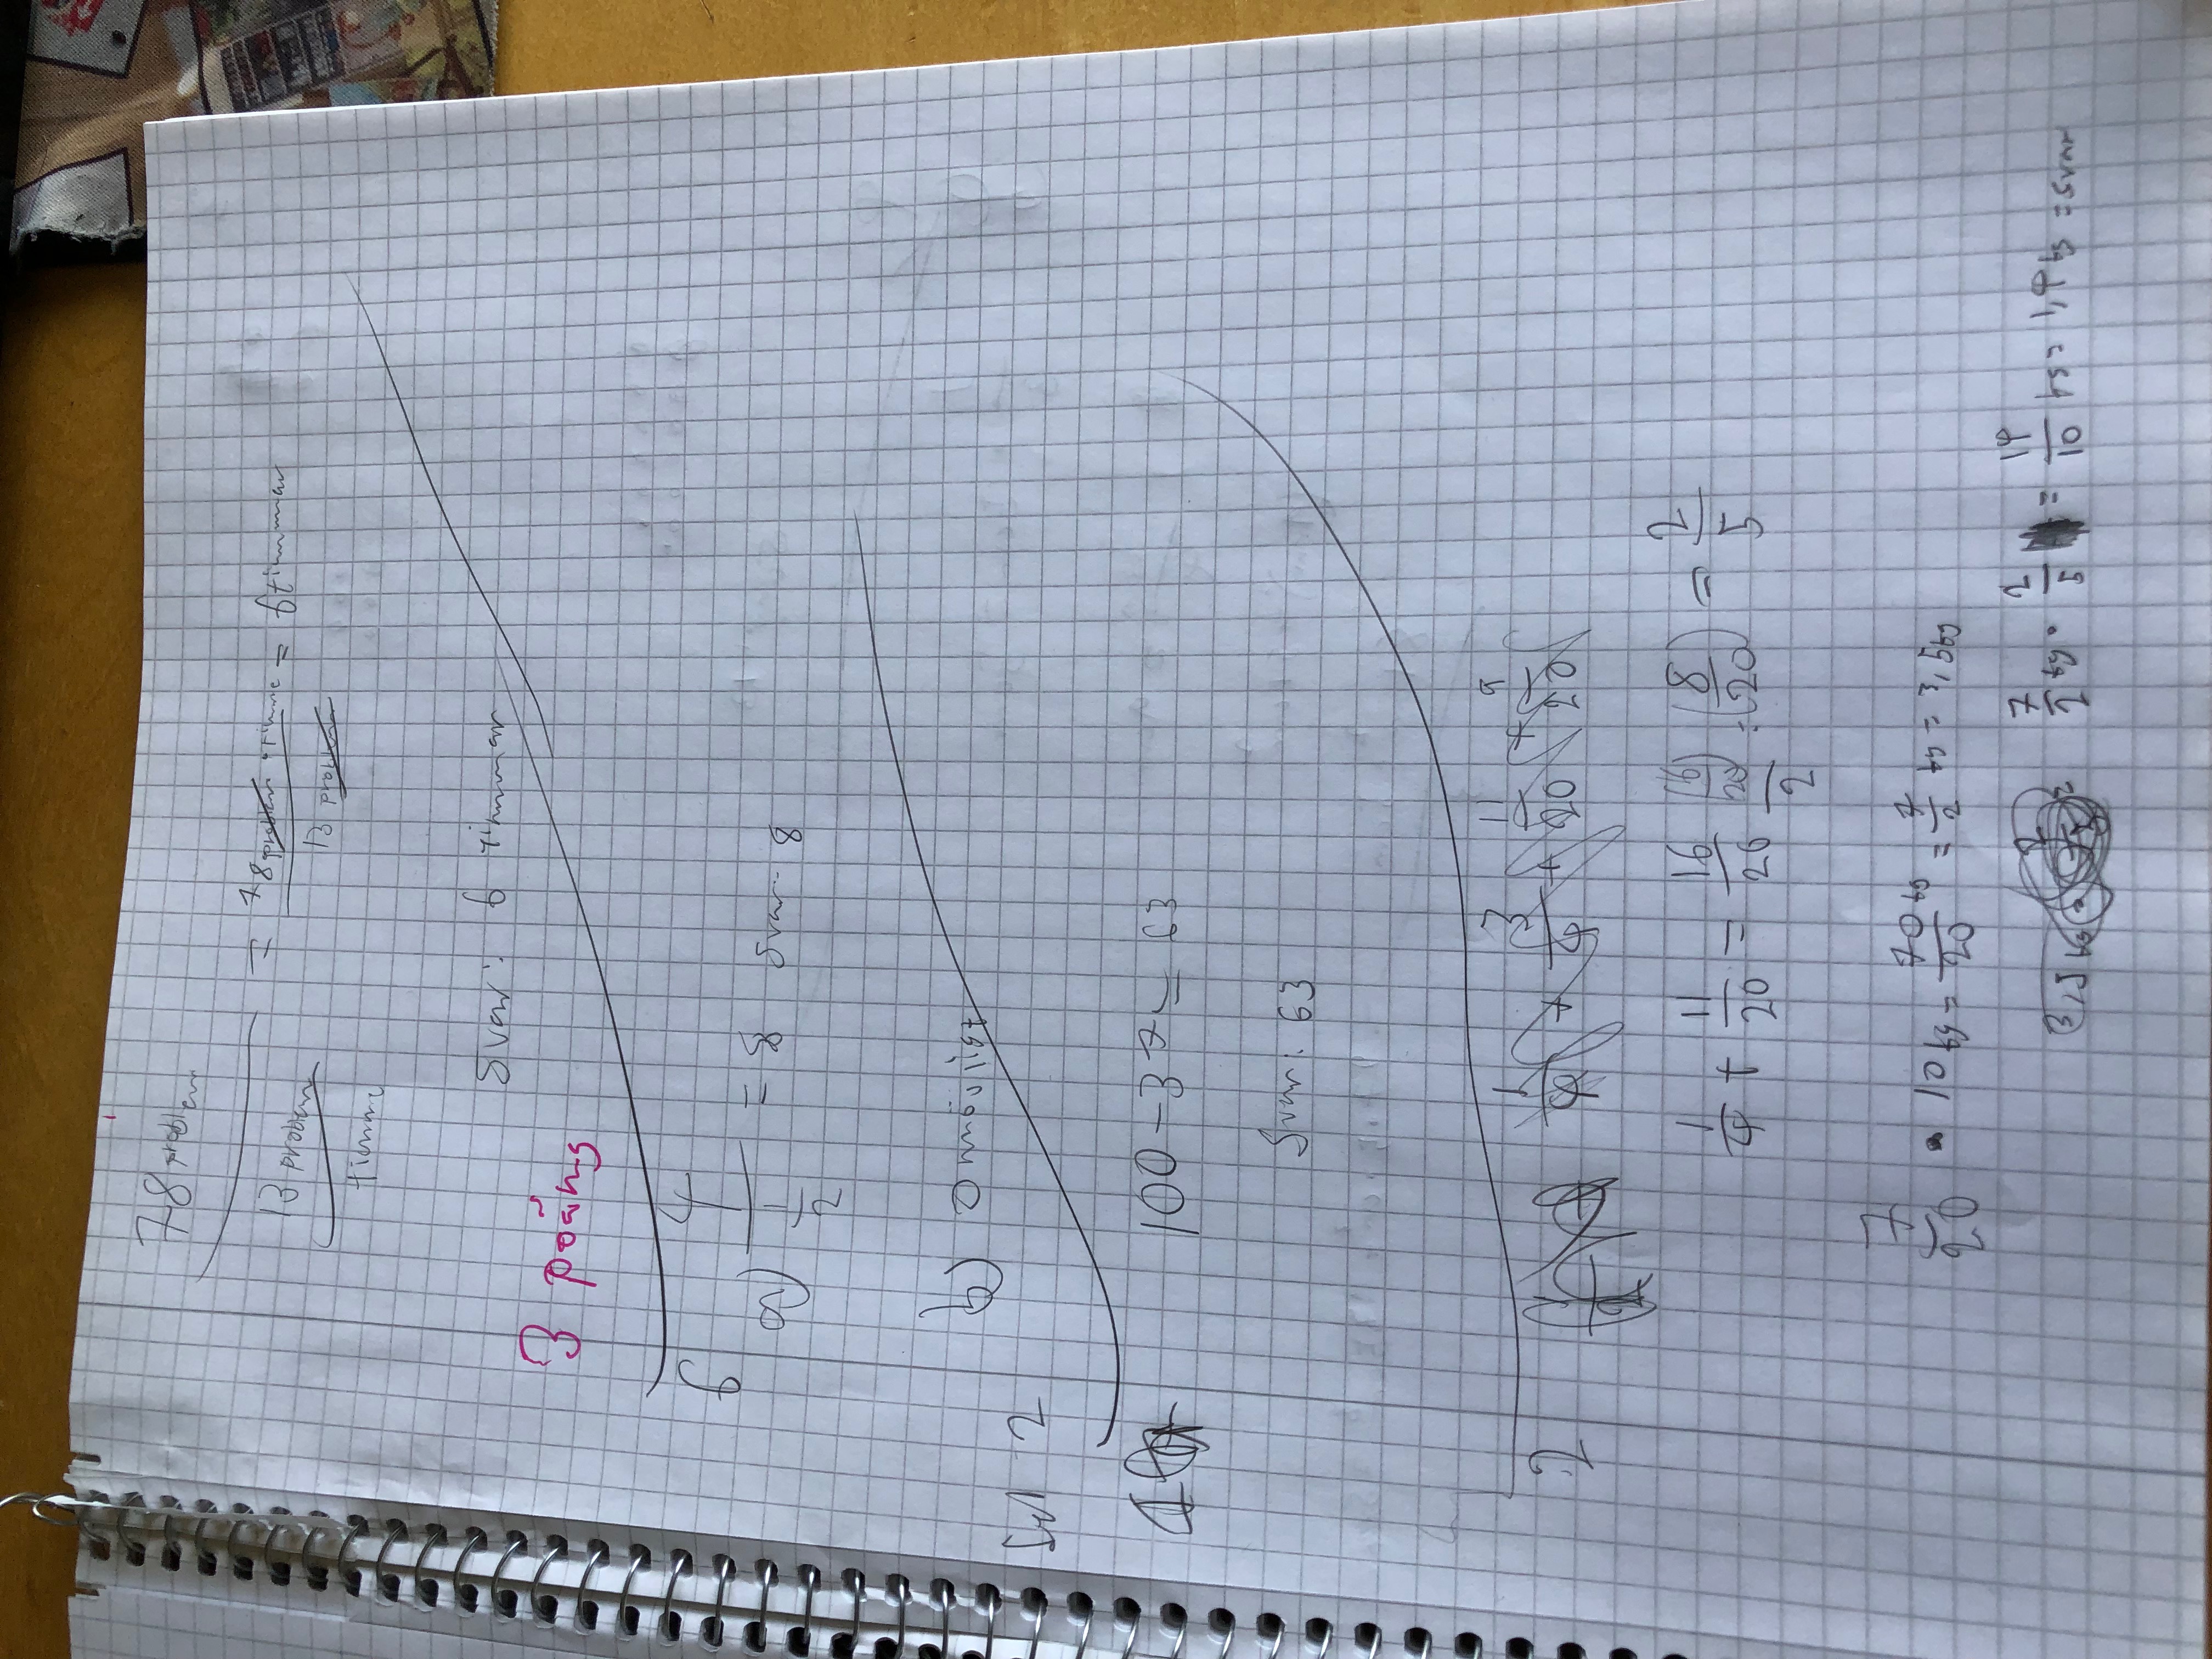 78 problem
13 problem
timme
= 78 problem · timme
13 problem
= 6 timmar
Svar: 6 timmar
3 poäng
6
a) 4 / 1/2 = 8 Svar: 8
b) Omöjligt
Del 2
1
100 - 37 = 63
Svar: 63
2
1/4 + 11/20 = 16/20 (16/20)/2 = (8/20) = 2/5
7/20 · 10 kg = 70/20 kg = 7/2 kg = 3,5 kg
3,5 kg · 7/2 kg · 2/5 = 14/10 kg = 1,4 kg = svar